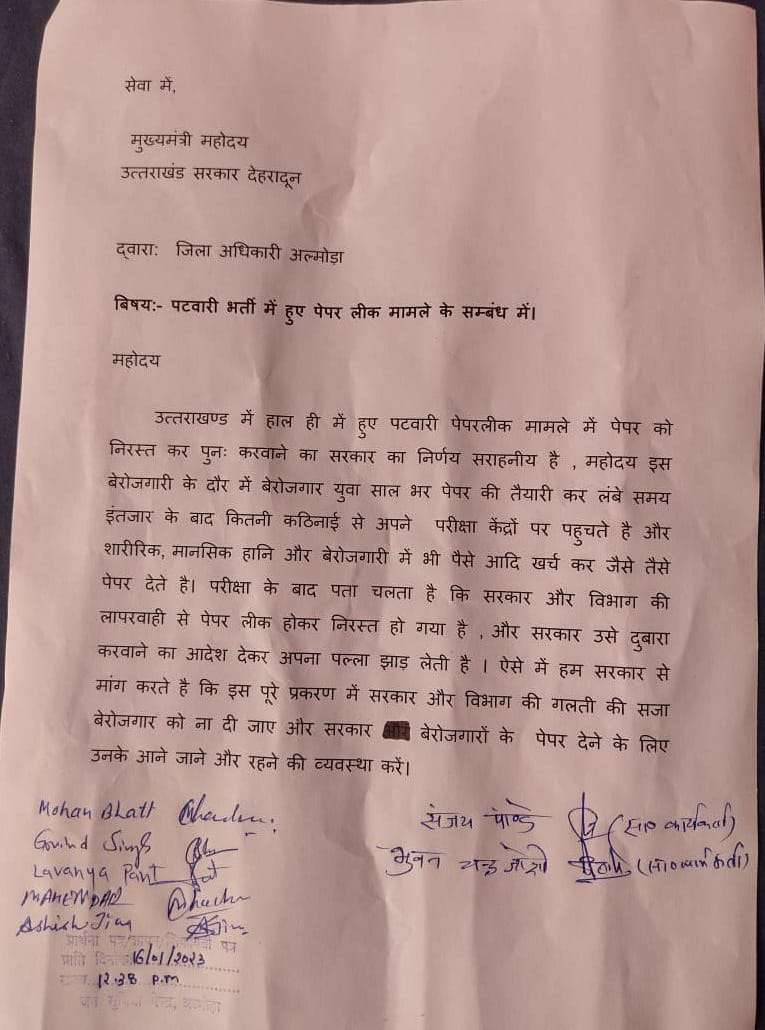 सेवा में,
मुख्यमंत्री महोदय
उत्तराखंड सरकार देहरादून
द्वारा: जिला अधिकारी अल्मोड़ा
बिषय:- पटवारी भर्ती में हुए पेपर लीक मामले के सम्बंध में।
महोदय
उत्तराखण्ड में हाल ही में हुए पटवारी पेपरलीक मामले में पेपर को
निरस्त कर पुनः करवाने का सरकार का निर्णय सराहनीय है , महोदय इस
बेरोजगारी के दौर में बेरोजगार युवा साल भर पेपर की तैयारी कर लंबे समय
इंतजार के बाद कितनी कठिनाई से अपने परीक्षा केंद्रों पर पहुचते है और
शारीरिक, मानसिक हानि और बेरोजगारी में भी पैसे आदि खर्च कर जैसे तैसे
पेपर देते है। परीक्षा के बाद पता चलता है कि सरकार और विभाग की
लापरवाही से पेपर लीक होकर निरस्त हो गया है , और सरकार उसे दुबारा
करवाने का आदेश देकर अपना पल्ला झाड़ लेती है । ऐसे में हम सरकार से
मांग करते है कि इस पूरे प्रकरण में सरकार और विभाग की गलती की सजा
बेरोजगार को ना दी जाए और सरकार बेरोजगारों के पेपर देने के लिए
उनके आने जाने और रहने की व्यवस्था करें।
Mohan Bhatt
Govind Singh
Lavanya Pant
MAHENDAR
Ashish
संजय पाण्डे (सा० कार्यकर्ता)
भुवन चन्द्र जोशी (सा० कार्यकर्ता)
16/01/2023
12.38 p.m